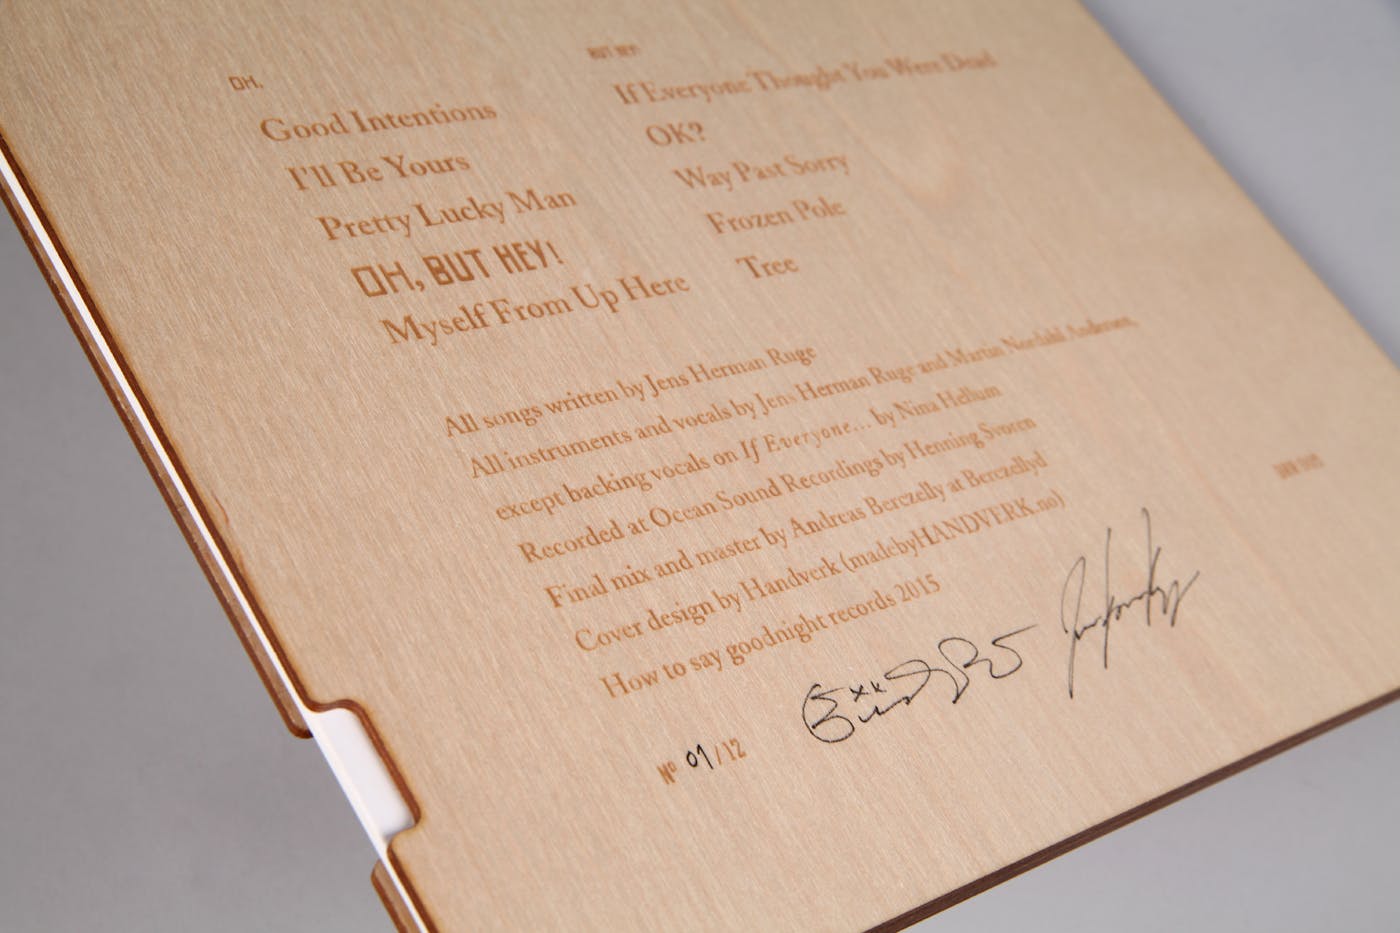 OH,
Good Intentions
I'll Be Yours
Pretty Lucky Man
OH, BUT HEY!
Myself From Up Here
BUT HEY!
If Everyone Thought You Were Dead
OK?
Way Past Sorry
Frozen Pole
Tree
All songs written by Jens Herman Ruge
All instruments and vocals by Jens Herman Ruge and Martin Nordahl Andersen,
except backing vocals on If Everyone... by Nina Hellum
Recorded at Ocean Sound Recordings by Henning Svoren
Final mix and master by Andreas Berczelly at Berczellyd
Cover design by Handverk (madebyHANDVERK.no)
How to say goodnight records 2015
Nº 01/12